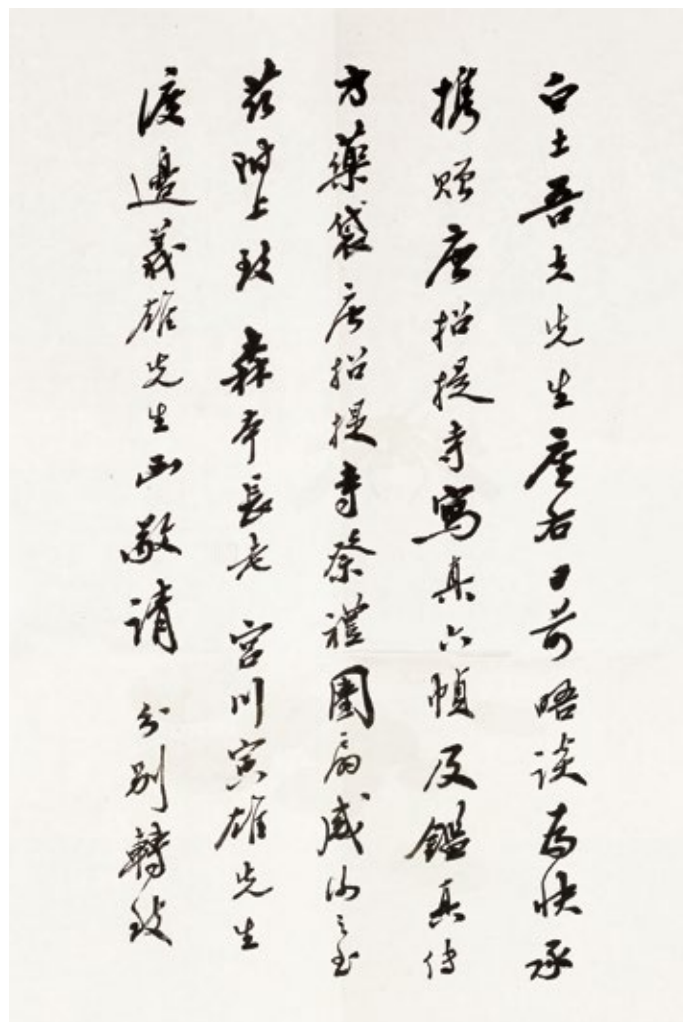 白土吾夫先生座右日前晤談為快承
携贈唐招提寺寫真六幀及鑑真傳
方藥袋唐招提寺祭禮團扇感謝之至
茲附上致 森本長老 宮川寅雄先生
渡邊義雄先生函敬請 分別轉致